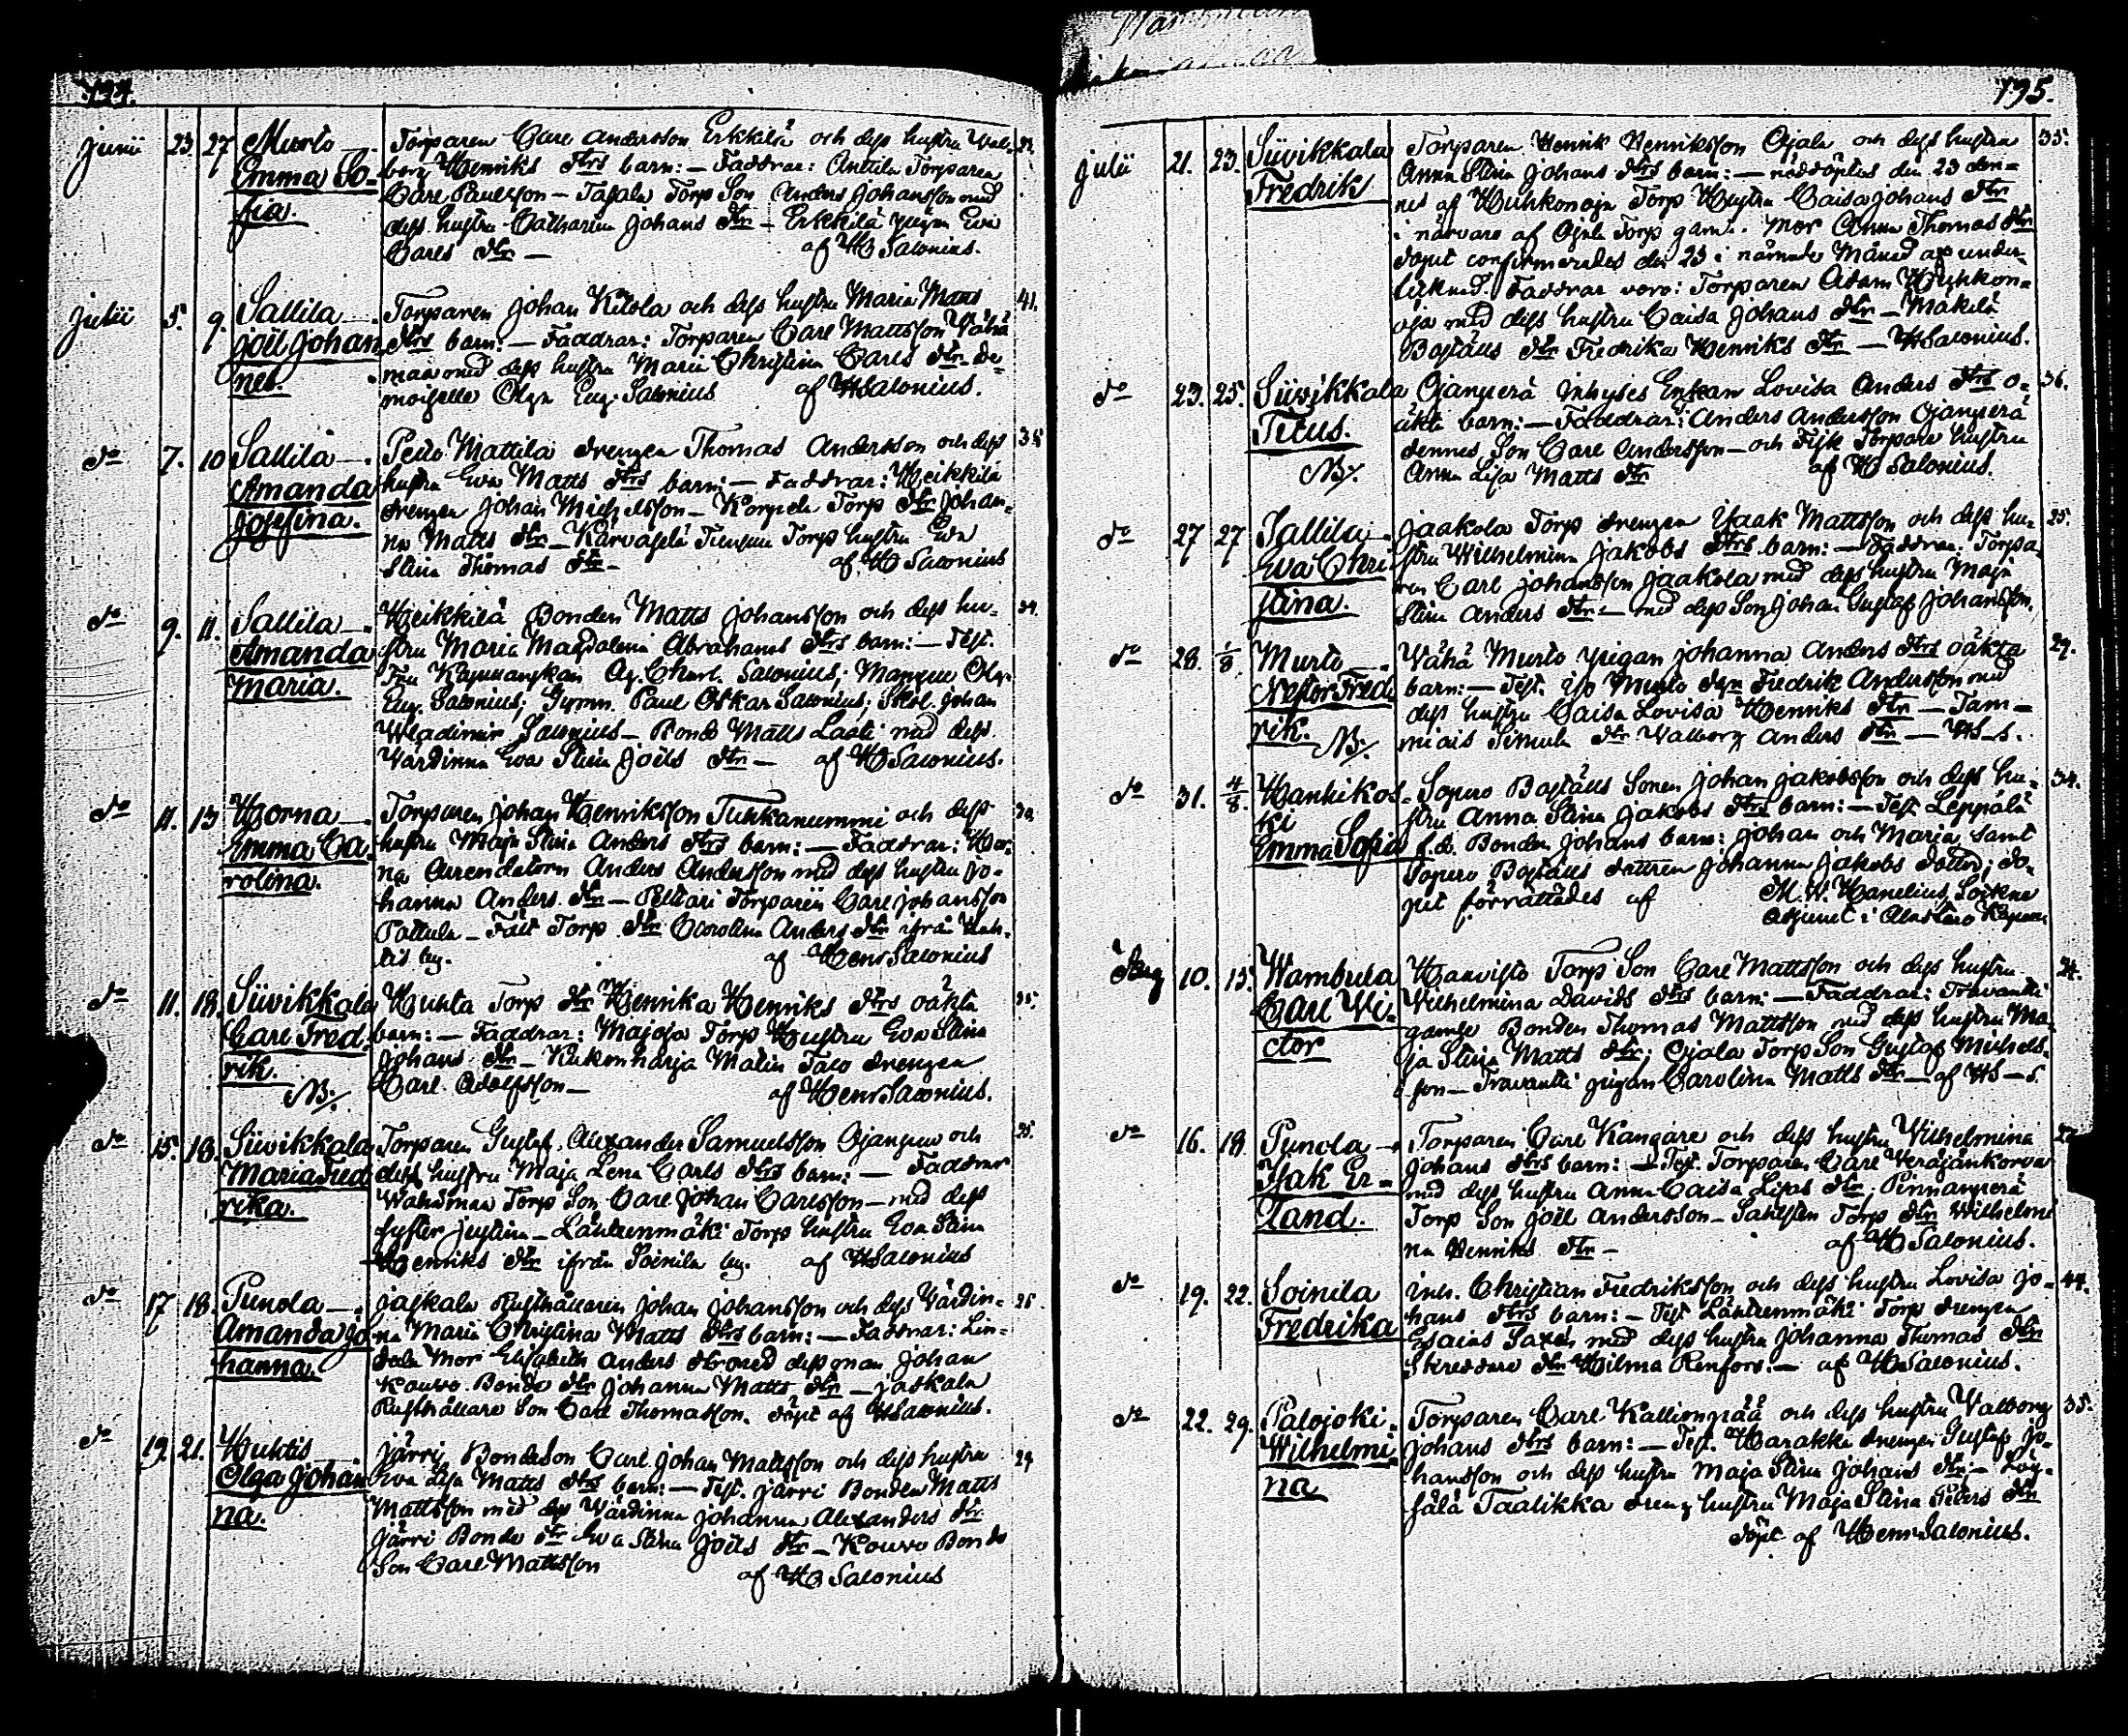 194.
Junii 23. 27 Murto — Torparen Carl Andersson Erkkilä och dess hustru Wal-
Emma So- borg Henriks dtrs barn: — Faddrar: Anttila Torparen
fia. Carl Paulsson — Torp Son Anders Johansson med
dess hustru Catharina Johans dtr — Erkkilä pigan Eva
Carls dtr — af H Salonius.
Julii 5. 9. Sallila — Torparen Johan Kitola och dess hustru Maria Matts 41.
Joël Johan dtrs barn: — Faddrar: Torparen Carl Mattsson Vähä
nes. maa med dess hustru Maria Christina Carls dtr. De-
moiselle Olga Eug. Salonius af H Salonius.
do 7. 10 Sallila — Mattila drengen Thomas Andersson och dess 35
Amanda hustru Eva Matts dtrs barn: — Faddrar: Heikkilä
Josefina. drengen Johan Michelsson — Korpela Torp dtr Johan-
na Matts dtr — Torp hustru Eva
Stina Thomas dtr — af H Salonius
do 9. 11. Sallila — Heikkilä Bonden Matts Johansson och dess hu-
Amanda stru Maria Magdalena Abrahams dtrs barn: — Test.
Maria. Fru Charl. Salonius; Olga
Eug. Salonius; Gymn. Paul Oskar Salonius; Skol. Johan
Wladimir Salonius — Bond Matts Lasti med dess
Värdinna Eva Stina Joëls dtr — af H Salonius.
do 11. 13 Horna — Torparen Johan Henriksson Tuhkanummi och dess
Emma Ca- hustru Maja Stina Anders dtrs barn: — Faddrar: Hor-
rolina. na Arendatorn Anders Andersson med dess hustru Jo-
hanna Anders dtr — Peltari Torparen Carl Johansson
Pattula — Fält Torp dtr Carolina Anders dtr ifrån Huh-
tis by. af Henr Salonius
do 11. 18. Siivikkala Huhta Torp dtr Henrika Henriks dtrs oäkta
Carl Fred- barn: — Faddrar: Majoja Torp Hustru Eva Stina
rik. Johans dtr — Kukonharja Malin Taco drengen
NB. Carl Adolfsson — af Henr Salonius.
do 15. 18. Siivikkala Torparen Gustaf Alexander Samuelsson och
Maria Fred dess hustru Maja Lena Carls dtrs barn: — Faddrar
rika. Torp Son Carl Johan Carlsson — med dess
syster Justina — Länkenmäki Torp hustru Eva Stina
Henriks dtr ifrån Soinila by. af H Salonius
do 17 18. Punola — Jaskala Rusthållaren Johan Johansson och dess Värdin-
Amanda Jo na Maria Christina Matts dtrs barn: — Faddrar: Lin-
hanna. dala Mor Elisabeth Anders dtr med dess man Johan
Kouvo Bonde dtr Johanna Matts dtr — Jaskala
Rusthållare Son Carl Thomasson. döpt af H Salonius.
do 19. 21. Huhtis Järri Bondeson Carl Johan Mattsson och dess hustru 29
Olga Johan Eva Lisa Matts dtrs barn: — Test. Järri Bonden Matts
na. Mattsson med dess Värdinna Johanna Alexanders dtr
Järri Bonde dtr Eva Stina Joëls dtr — Kouvo Bonde
Son Carl Mattsson af H Salonius
195.
Julii 21. 23. Siivikkala Torparen Henrik Henriksson Ojala och dess hustru 35.
Fredrik Anna Stina Johans dtrs barn: — nöddöptes den 23 den-
nes af Huhkonoja Torp Hustru Caisa Johans dtr
i närvaro af Ojala Torp gaml. Mor Anna Thomas dtr
dopet confirmerades den 23 i nämnde Månad af under-
tecknad. Faddrar voro: Torparen Adam Huhkon-
oja med dess hustru Caisa Johans dtr — Mäkilä
Bostäds dtr Fredrika Henriks dtr — H Salonius.
do 23. 25. Siivikkala Ojanperä Inhyses Enkan Lovisa Anders dtrs o- 36.
Titus. äkta barn: — Faddrar: Anders Andersson Ojanperä
NB. dennes Son Carl Andersson — och Torpare hustru
Anna Lisa Matts dtr af H Salonius.
do 27 27 Sallila — Jaakola Torp drengen Isaak Mattsson och dess hu- 25.
Eva Chri stru Wilhelmina Jakobs dtrs barn: — Faddrar: Torpa-
stina. ren Carl Johansson Jaakola med dess hustru Maja
Stina Anders dtr — med dess Son Johan Gustaf Johansson.
do 28. 1/8. Murto — Vähä Murto pigan Johanna Anders dtrs oäkta 29.
Nestor Fred barn: — Test. Iso Murto Fredrik Andersson med
rik. NB. dess hustru Caisa Lovisa Henriks dtr — Tam-
miais Simula dtr Walborg Anders dtr — HS—s.
do 31. 4/8. Hanhikos- Sopero Bostäds Sonen Johan Jakobsson och dess hu- 34.
ki stru Anna Stina Jakobs dtrs barn: — Test Leppälä
Emma Sofia f.d. Bonden Johans barn: Johan och Maria, samt
Sopero Bostäds dottren Johanna Jakobs dotter; do-
pet förrättades af M. W. Hanelius, Sockne
adjunct i Alastaro Kapell
Aug 10. 15. Wambula Torp Son Carl Mattsson och dess hustru 24.
Carl Vi- Wilhelmina Davids dtrs barn: — Faddrar: Travantti
ctor gamle Bonden Thomas Mattsson med dess hustru Ma-
ja Stina Matts dtr; Ojala Torp Son Gustaf Michels-
son — Travantti pigan Carolina Matts dtr — af HS—s.
do 16. 18 Punola — Torparen Carl Kangare och dess hustru Wilhelmina
Isak Er- Johans dtrs barn: — Test. Torparen Carl Veräjänkorva
land. med dess hustru Anna Caisa Lisas dtr; Pinnanperä
Torp Son Joël Andersson — Torp dtr Wilhelmi
na Henriks dtr — af H Salonius.
do 19. 22. Soinila Inh. Christian Fredriksson och dess hustru Lovisa Jo- 44.
Fredrika hans dtrs barn: — Test Länkenmäki Torp drengen
Esaias med dess hustru Johanna Thomas dtr
Skreddare dtr Hilma Renfors. — af H Salonius.
do 22. 29. Palojoki: Torparen Carl Kallionpää och dess hustru Valborg 35.
Wilhelmi- Johans dtrs barn: — Test. Harakka drengen Gustaf Jo-
na hansson och dess hustru Maja Stina Johans dtr; —
Taalikka dreng hustru Maja Stina Peters dtr
döpt af Henr Salonius.